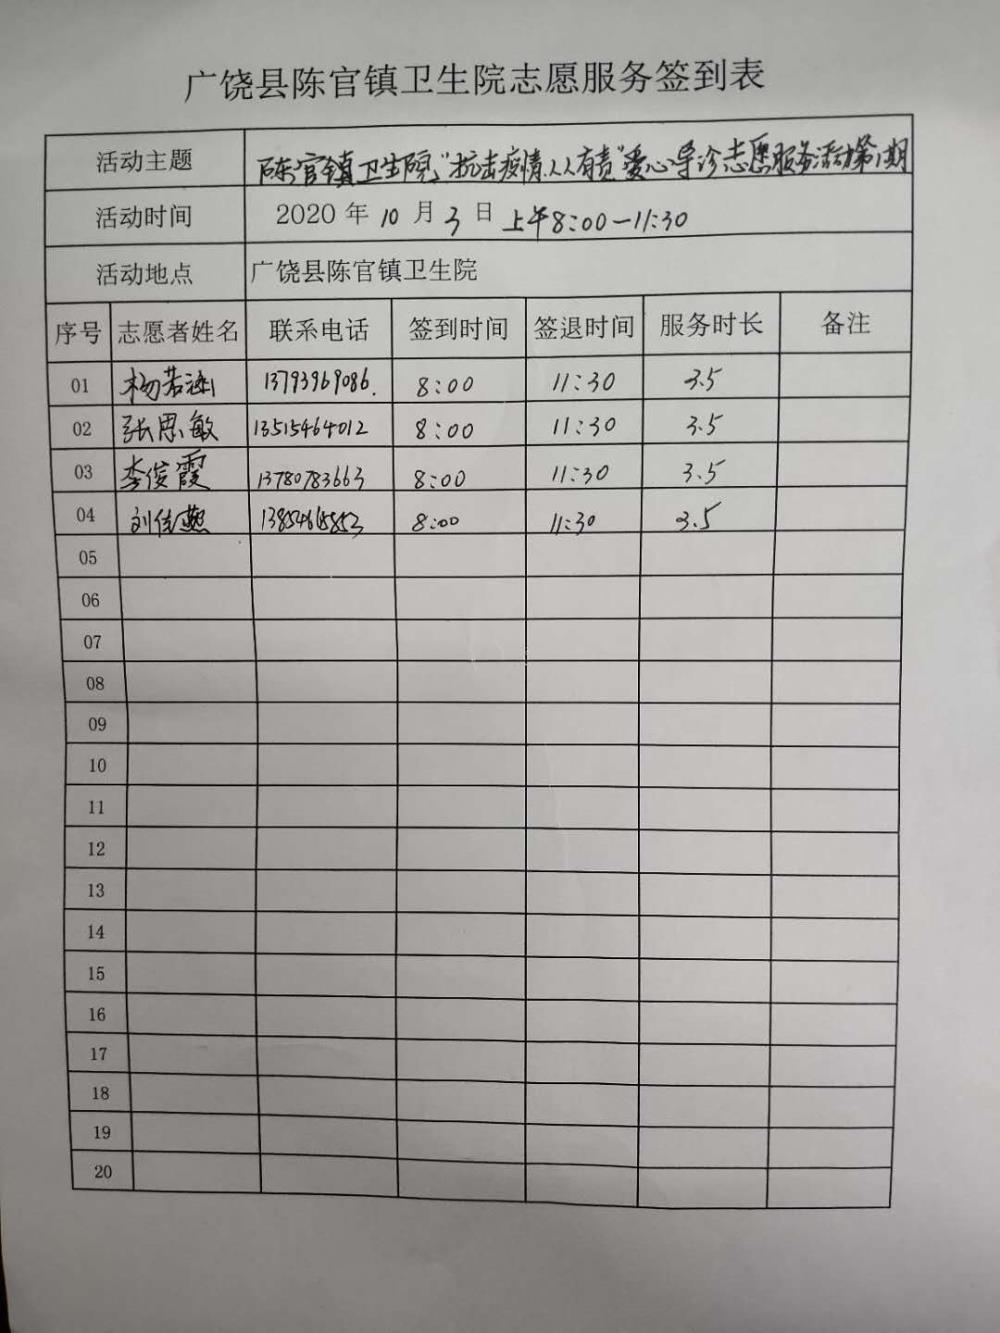 广饶县陈官镇卫生院志愿服务签到表
活动主题 陈官镇卫生院“抗击疫情人人有责”爱心导诊志愿服务活动第1期
活动时间 2020 年 10 月 3 日 上午8:00-11:30
活动地点 广饶县陈官镇卫生院
序号 志愿者姓名 联系电话 签到时间 签退时间 服务时长 备注
01 杨若涵 13793969086. 8:00 11:30 3.5
02 张思敏 13515464012 8:00 11:30 3.5
03 李俊霞 13780783663 8:00 11:30 3.5
04 刘佳燕 8:00 11:30 3.5
05
06
07
08
09
10
11
12
13
14
15
16
17
18
19
20